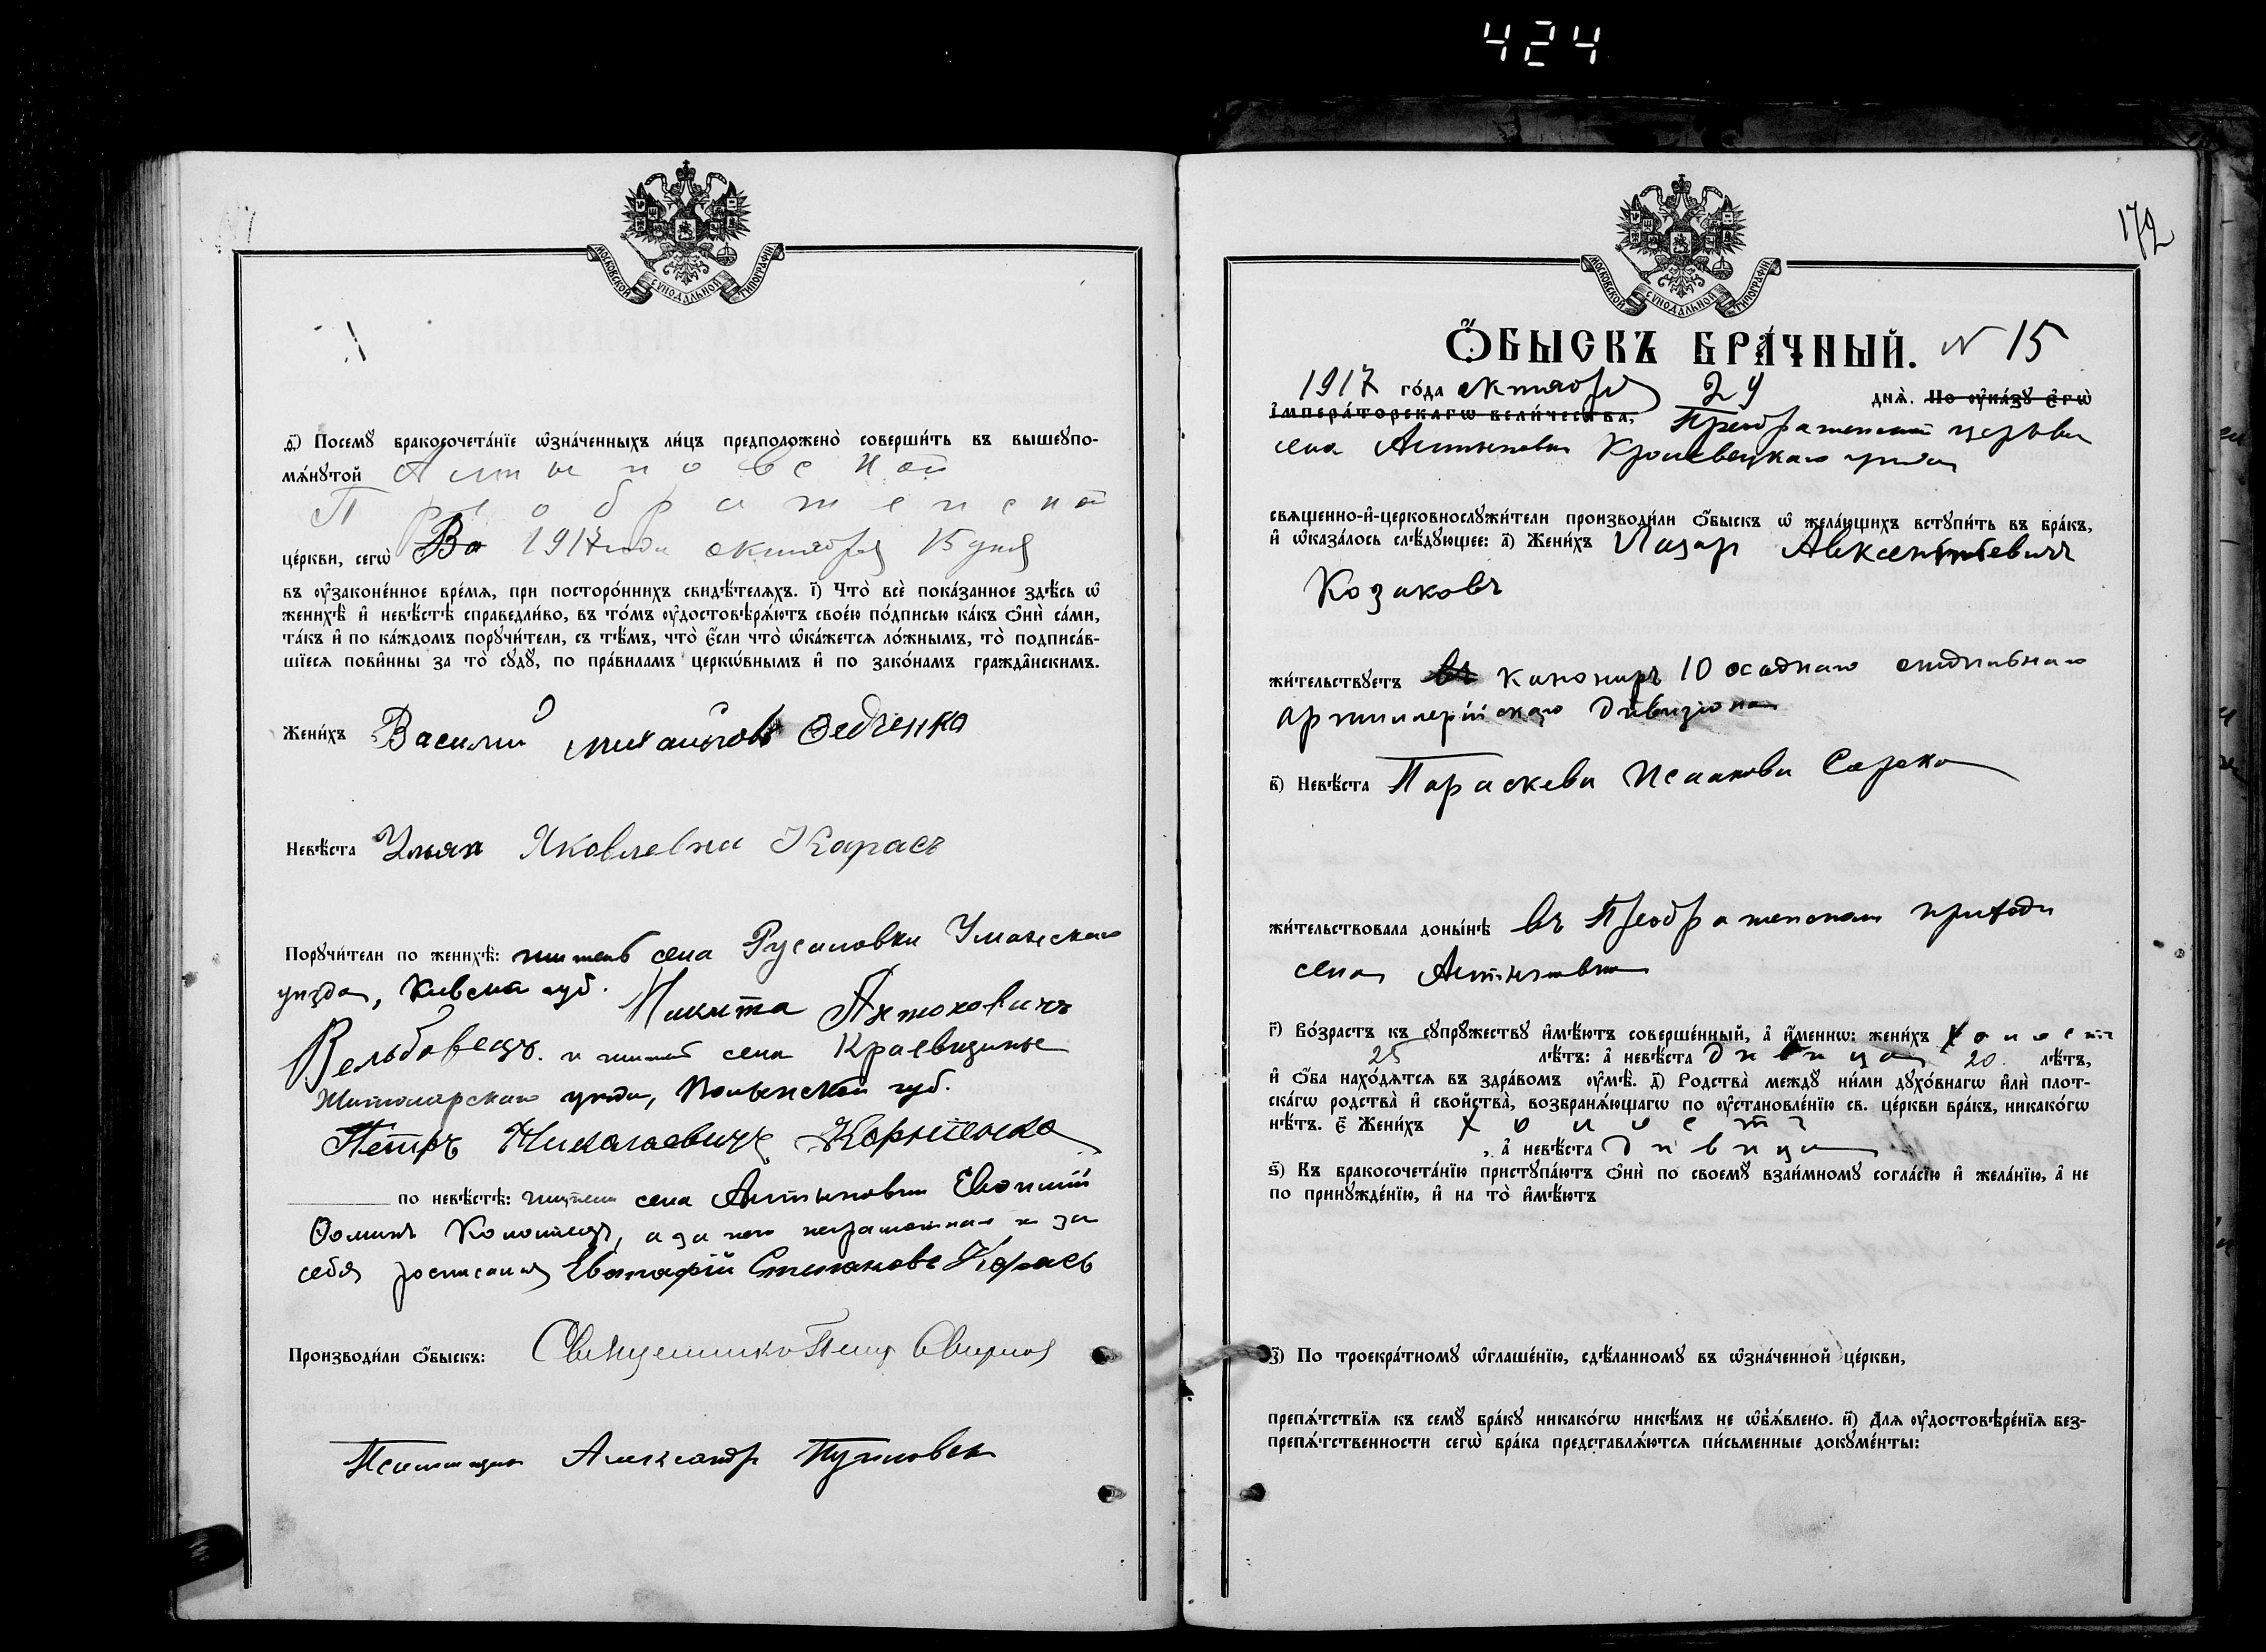 424
МОСКОВСКОЙ СѴНОДАЛЬНОЙ ТИПОГРАФІИ
ѳ҃) Посемꙋ̀ бракосочета́нїе ѡ҆зна́ченныхъ ли́цъ предположено̀ соверши́ть въ вышеꙋпо-
мѧ́нꙋтой Алтыновской
Преображенской
це́ркви, сегѡ̀ Во 1917 года октября 15 дня
въ ᲂу҆зако́ненное вре́мѧ, при посторо́ннихъ свидѣ́телѧхъ. і҃) Что̀ всѐ пока́занное здѣ́сь ѡ҆
женихѣ̀ и҆ невѣ́стѣ справедли́во, въ то́мъ ᲂу҆достовѣрѧ́ютъ свое́ю по́дписью ка́къ ѻ҆нѝ са́ми,
та́къ и҆ по ка́ждомъ порꙋчи́тели, съ тѣ́мъ, что̀ є҆́сли что̀ ѡ҆ка́жетсѧ ло́жнымъ, то̀ подписа́в-
шїесѧ пови́нны за то̀ сꙋдꙋ̀, по пра́виламъ церкѡ́внымъ и҆ по зако́намъ гражда́нскимъ.
Жени́хъ Василий Михайловъ Ѳедченко
Невѣ́ста Ульян Яковлевна Карась
Порꙋчи́тели по женихѣ̀: житель села Русаловки Уманскаго
уѣзда, Киевской губ. Никита
и житель села
Житомирскаго уѣзда, Волынской губ.
Петръ Николаевичъ Корнѣенко
по невѣ́стѣ: житель села Алтыновки
Ѳоминъ Коломіецъ, а за него неграмотнаго и за
себя росписался Степановъ Карась
Производи́ли ѻ҆́быскъ: Священникъ
Псаломщикъ Александр
МОСКОВСКОЙ СѴНОДАЛЬНОЙ ТИПОГРАФІИ
172
Ѻ҆́БЫСКЪ БРА́ЧНЫЙ. N 15
1917 го́да октября 24 днѧ̀. По ᲂу҆ка́зꙋ є҆гѡ̀
і҆мпера́торскагѡ вели́чества, Преображенской церкви
села Алтыновки Кролевецкаго уѣзда
свѧще́нно-и҆-церковнослꙋжи́тели производи́ли ѻ҆́быскъ ѡ҆ жела́ющихъ встꙋпи́ть въ бра́къ,
и҆ ѡ҆каза́лось слѣ́дꙋющее: а҃) Жени́хъ Лазарь Авксентіевичъ
Козаковъ
жи́тельствꙋетъ въ канониръ 10 осаднаго
артиллерійскаго дивизіона
в҃) Невѣ́ста Параскева Исаакова Сорока
жи́тельствовала доны́нѣ въ Преображенском приходѣ
села Алтыновки
г҃) Во́зрастъ къ сꙋпрꙋ́жествꙋ и҆мѣ́ютъ соверше́нный, а҆ и҆́меннѡ: жени́хъ холостъ
25 лѣ́тъ: а҆ невѣ́ста дѣвица 20. лѣ́тъ,
и҆ ѻ҆́ба нахо́дѧтсѧ въ здра́вомъ ᲂу҆мѣ̀. д҃) Родства̀ междꙋ̀ ни́ми дꙋхо́внагѡ и҆лѝ плот-
ска́гѡ родства̀ и҆ сво́йства, возбранѧ́ющагѡ по ᲂу҆становле́нїю св. це́ркви бра́къ, никако́гѡ
нѣ́тъ. є҃) Жени́хъ холостъ
, а҆ невѣ́ста дѣвица
ѕ҃) Къ бракосочета́нїю пристꙋпа́ютъ ѻ҆нѝ по своемꙋ̀ взаи́мномꙋ согла́сїю и҆ жела́нїю, а҆ не
по принꙋжде́нїю, и҆ на то̀ и҆мѣ́ютъ
з҃) По троекра́тномꙋ ѡ҆глаше́нїю, сдѣ́ланномꙋ въ ѡ҆зна́ченной це́ркви,
препѧ́тствїѧ къ семꙋ̀ бра́кꙋ никако́гѡ никѣ́мъ не ѡ҆б̾ѧ́влено. и҃) Длѧ ᲂу҆достовѣре́нїѧ без-
препѧ́тственности сегѡ̀ бра́ка представлѧ́ютсѧ пи́сьменные докꙋме́нты: